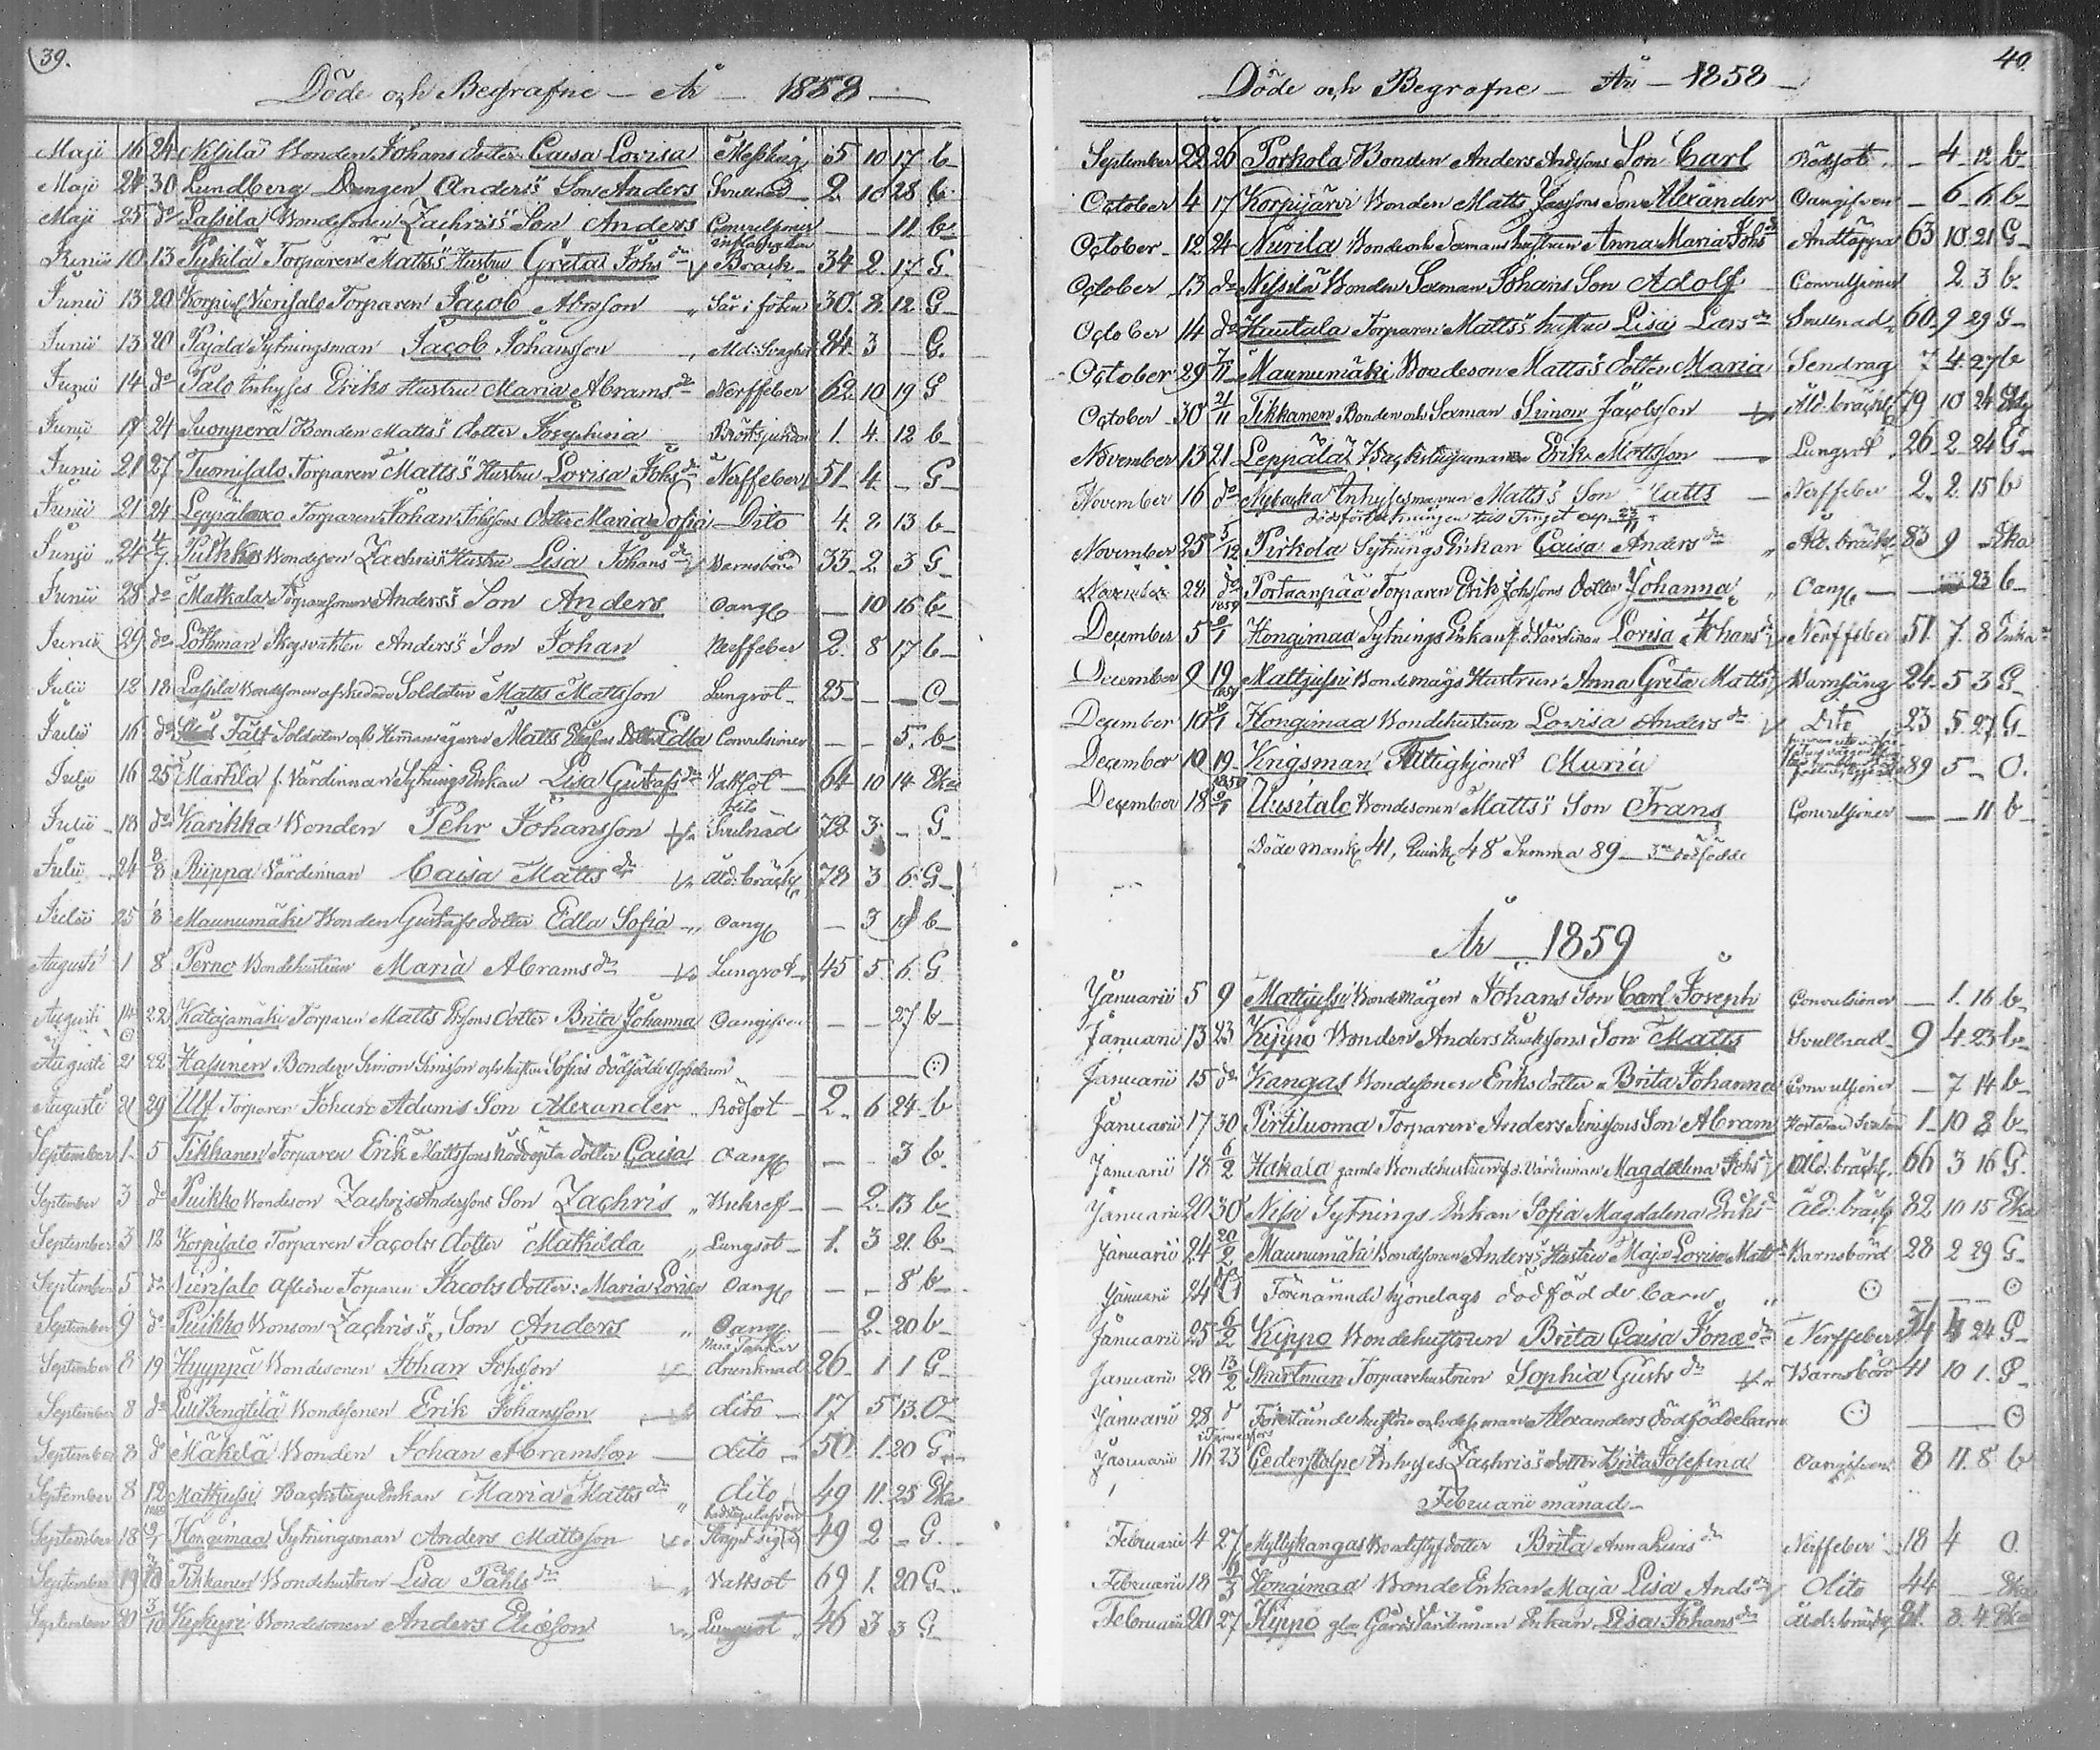 39.
Döde och Begrafne — År — 1858 —
Maji 16 24 Nissilä Bonden Johans dotter Caisa Lovisa Messling 5 10 17 b
Maji 24 30 Lundberg Drengen Anders's Son Anders 2. 10 28 b
Maji 25 do Lassila Bondesonen Zachris's Son Anders Convulsioner — — 11 b
Junii 10 13 Torparen Matts's Hustru Greta Johsdr Brach 34 2 17 G
Junii 13 20 Vierisalo Torparen Jacob Abrsson Sår i foten 30. 8. 12 G
Junii 13 20 Pajala Sytningsman Jacob Johansson 84 3 — G.
Junii 14 do Palo Inhyses Eriks Hustru Maria Abramsdr Nerffeber 62 10 19 G
Junii 17 24 Luonperä Bonden Matts's dotter Josephina Bröstsjukdom 1. 4. 12 b
Junii 21 27 Tuomisalo Torparen Matts's Hustru Lovisa Johsdr Nerffeber 51 4 — G
Junii 21 24 Torparen Johan Johssons dotter Maria Sofia Dito 4. 2 13 b
Junii 24 4/7 Puikko Bondeson Zachris's Hustru Lisa Johansdr Barnsbörd 33 2. 3 G
Junii 28 do Matkala Anders's Son Anders Oang — 10 16 b
Junii 29 do Löthman Skogsvakten Anders's Son Johan Nerffeber 2. 8 17 b
Julii 12 18 Lassila Bondesonen afskedade Soldaten Matts Mattsson Lungsot 25 — — O
Julii 16 do Fält Soldaten och Hemmansägaren Matts dotter Edla Convulsioner — — 5. b
Julii 16 25 Marttila f. Värdinnan Sytnings Enkan Lisa Gustafsdr Vattsot 64 10 14 Eka
Julii 18 do Karikka Bonden Pehr Johansson Svulnad 72 3 — G
Julii 24 8/8 Riippa Värdinnan Caisa Mattsdr Åld: bräckl 78 3 6. G
Julii 25 8 Maunumäki Bonden Gustafs dotter Edla Sofia Oang — 3 b
Augusti 1 8 Perno Bondehustrun Maria Abramsdr Lungsot 45 5 6. G
Augusti 14 22 Katajamäki Torparen Matts Erssons dotter Brita Johanna Oangifven — — 27 b
Augusti 21 22 Hassinen Bonden Simon Simsson och hustru Sofias dödfödde Gossebarn
Augusti 21 29 Ulf Torparen Johan Adams Son Alexander Rödsot 2. 6 24 b
September 1 5 Tikkanen Torparen Erik Mattssons dotter Caisa Oang — — 3 b.
September 3 do Puikko Bondeson Zachris Anderssons Son Zachris — 2. 13 b
September 3 12 Korpisalo Torparen Jacobs dotter Mathilda Lungsot 1. 3 21. b
September 5 do Vierisalo Aflidne Torparen Jacobs dotter: Maria Lovisa Oang — — 8 b
September 9 do Puikko Bonson Zachris's Son Anders Oang — 2. 20 b
September 8 19 Hyyppä Bondesonen Johan Johsson drunknad 26 1 1 G
September 8 do Bengtilä Bondesonen Erik Johansson dito 17 5 13. O
September 8 do Mäkelä Bonden Johan Abramsson dito 50. 1. 20 G
September 8 12 Mattjussi Backstugu Enkan Maria Mattsdr dito 49 11. 25 Eka
September 18 Hongimaa Sytningsman Anders Mattsson 49 2 — G.
September 19 Tikkanen Bondehustrun Lisa Påhlsdr Vattsot 69 1. 20 G
September 20 3/10 Kyykyri Bondesonen Anders Eliæson Lungsot 46 3 3 G
40.
Döde och Begrafne — År — 1858 —
September 22 26 Porkola Bonden Anders Andssons Son Carl Rödsot — 4 12 b
October 4 17 Korpijärvi Bonden Matts Son Alexander Oangifven — 6 6 b
October 12 24 Nurila Bonde och Sexmans hustrun Anna Maria Johsdr Andtäppa 63 10 21 G
October 13 do Nissilä Bonden Sexman Johans Son Adolf Convulsioner 2 3 b.
October 14 do Hautala Torparen Matts's hustru Lisa Larsdr Svullnad 60 9 29 G
October 29 7/11 Maunumäki Bondeson Matts's dotter Maria Sendrag 7 4. 27 b
October 30 21/11 Tikkanen Bonden och Sexman Simon Jacobsson Åld: bräckl 79 10 24
November 13 21 Leppälä Backstugumannen Erik Mattsson Lungsot 26 2 24 G
November 16 do Nykarka Inhysesmannen Matts's Son Matts Nerffeber 2. 2. 15 b
November 25 5/12 Pirkola Sytnings Enkan Caisa Andersdr Åld. bräckl 83 9 Eka
November 28 do Portaanpää Torparen Erik Johssons dotter Johanna Oang — 23 b
1859
December 5 Hongimaa Sytnings Enkan f.d. Värdinan Lovisa Johansdr Nerffeber 51 7. 8 Enka
December 9 19 Mattjussi Bondemågs Hustrun Anna Greta Mattsdr Barnsäng 24 5 3 G
1859
December 10 Hongimaa Bondehustrun Lovisa Andersdr Dito 23 5. 27 G
December 10 19 Krigsman Fattighjonet Maria 89 5 — O.
1859
December 18 Uusitalo Bondesonen Matts's Son Frans Convulsioner — — 11 b
Döde mank 41, Quink 48 Summa 89 — 3ne dödfödde
År — 1859
Januarii 5 9 Mattjussi Bondemågen Johans Son Carl Joseph Convulsioner — 1. 16 b
Januarii 13 23 Kippo Bonden Anders Son Matts Svullnad 9 4. 23 b
Januarii 15 do Kangas Bondesonen Eriks dotter Brita Johanna Convulsioner — 7 14 b
Januarii 17 30 Pirtiluoma Torparen Anders Simssons Son Abram 1 10 8 b
Januarii 18 6/2 Hakala gamla Bondehustrun f.d. Värdinnan Magdalena Johsdr Åld. bräckl. 66 3 16 G.
Januarii 20 30 Nisi Sytnings Enkan Sofia Magdalena Eriksdr Åld: bräckl 82 10 15 Eka
Januarii 24 20/2 Maunumäki Bondesonen Anders's Hustru Maja Lovisa Mattsdr Barnsbörd 28 2 29 G
Januarii 24 Förenämnde hjonelags dödfödde barn
Januarii 25 6/2 Kippo Bondehustrun Brita Caisa Jonædr Nerffeber 4 24 G
Januarii 28 13/2 Skurtman Torparehustrun Sophia Gustsdr Barnsbörd 41 10 1. G
Januarii 28 do hustru och dess man Alexanders dödfödde barn
Januarii 16 23 Inhyses Zachris's dotter Brita Josefina Oangifven 8 11. 8 b
Februarii månad —
Februarii 4 27 Myllykangas Brita Nerffeber 18 4 O.
Februarii 18 6/3 Hongimaa Bonde Enkan Maja Lisa Andsdr Dito 44 — Eka
Februarii 20 27 Kippo gla Gårds Värdinnan Enkan Lisa Johansdr Åld: bräckl 81. 3. 4 Eka